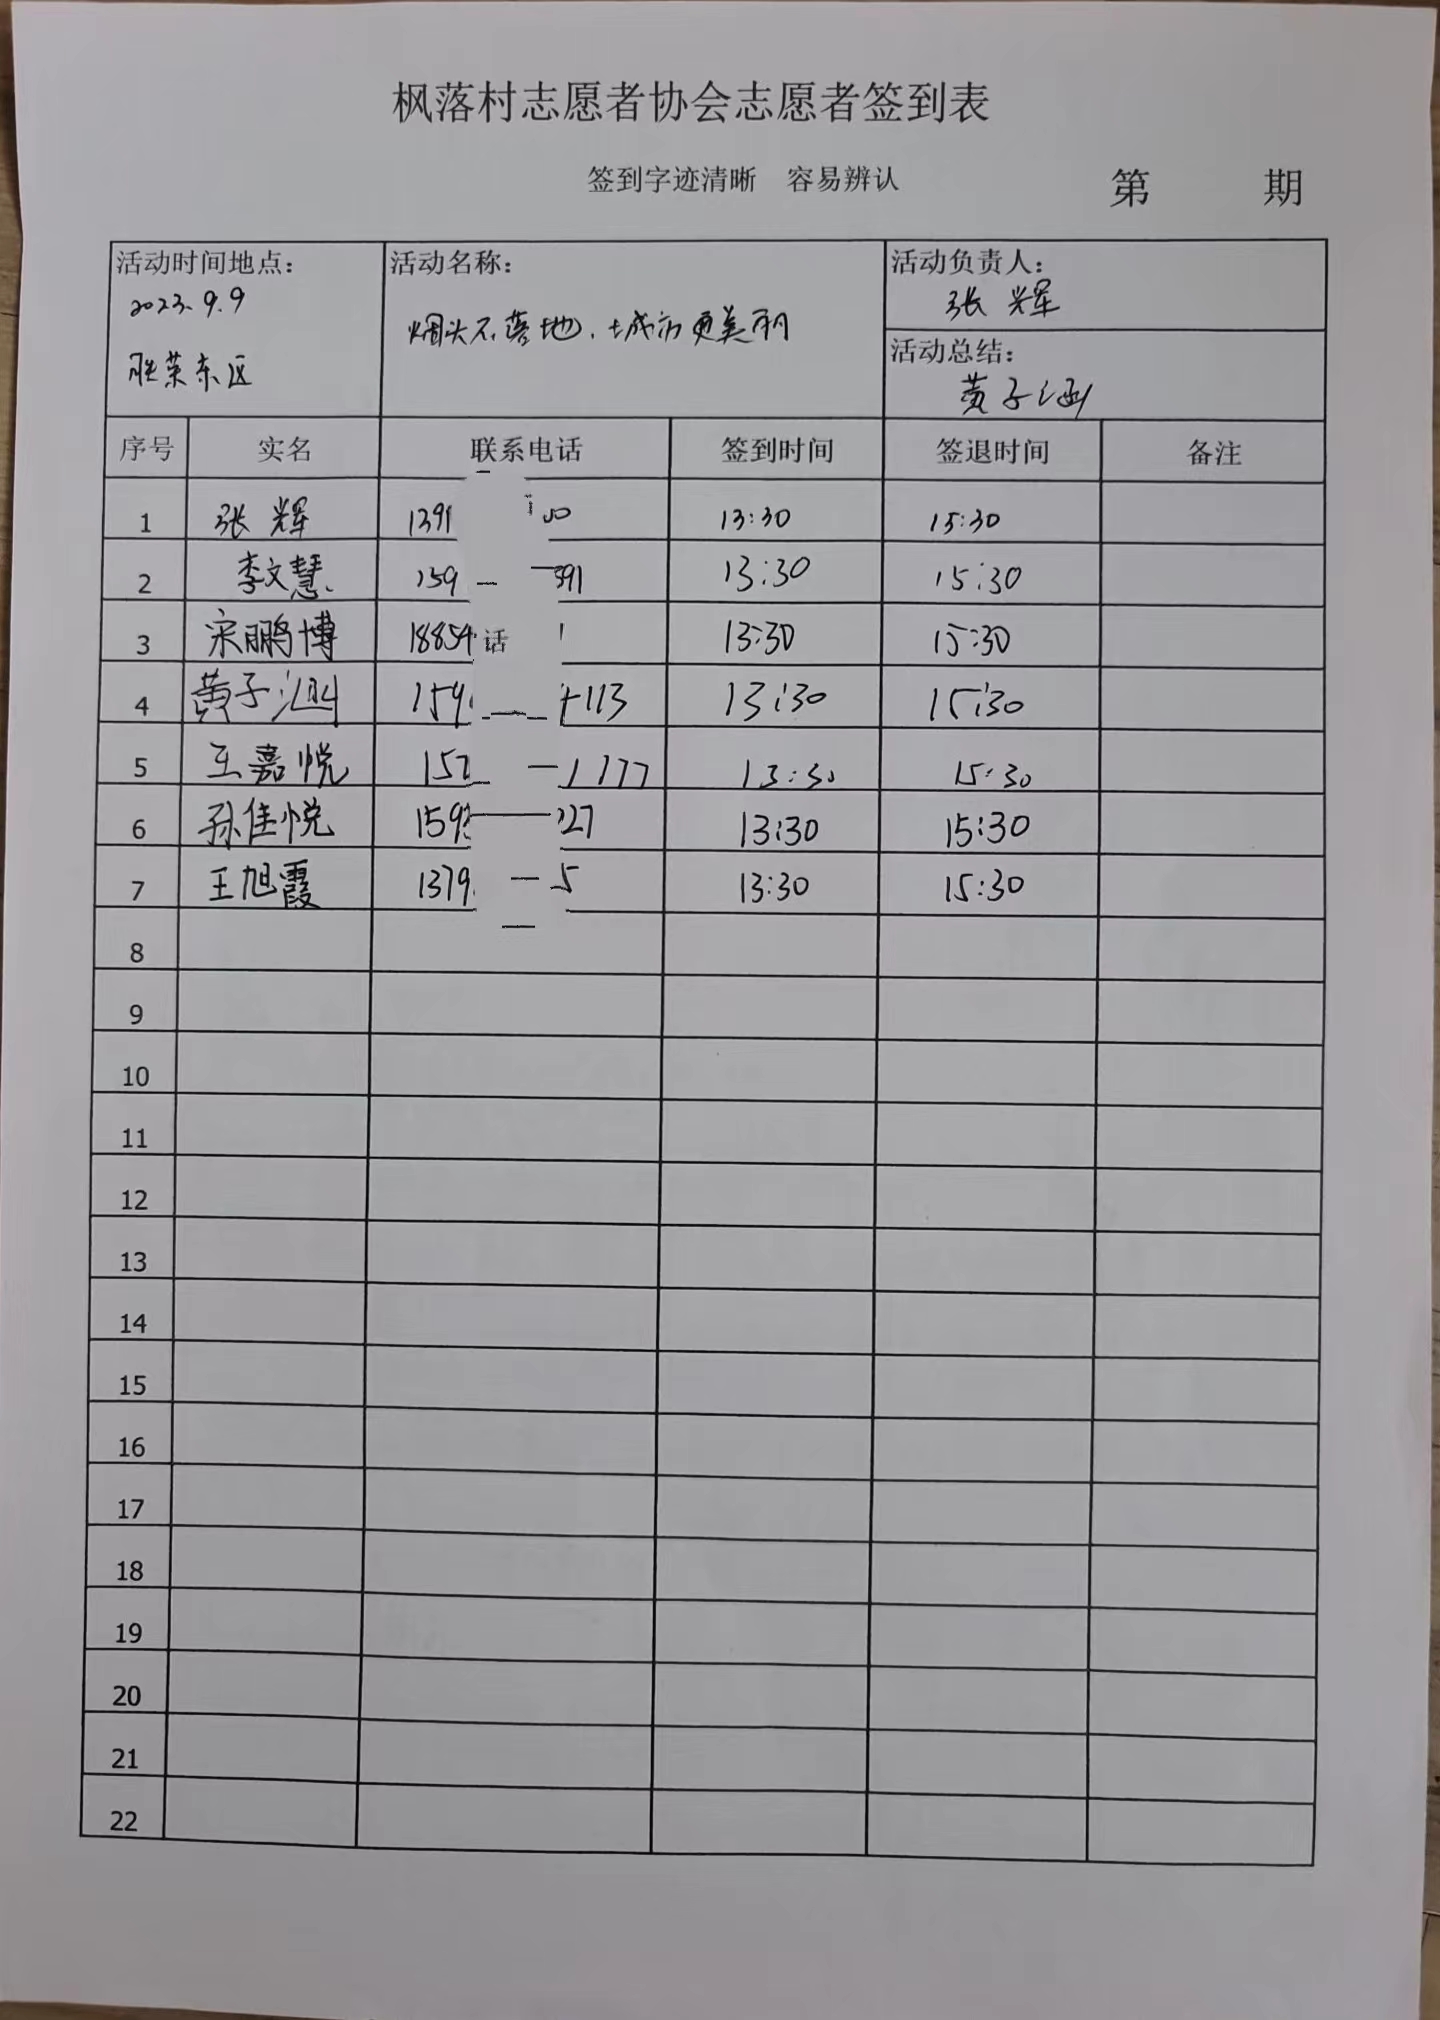 枫落村志愿者协会志愿者签到表
签到字迹清晰 容易辨认 第 期
活动时间地点: 活动名称: 活动负责人:
2023.9.9 张辉
烟头不落地,城市更美丽
活动总结:
胜荣东区 黄子涵
序号 实名 联系电话 签到时间 签退时间 备注
1 张辉 1391 00 13:30 15:30
2 李文慧 159 391 13:30 15:30
3 宋鹏博 18854 话 1 13:30 15:30
4 黄子涵 159 113 13:30 15:30
5 王嘉悦 152 1177 13:30 15:30
6 孙佳悦 159 27 13:30 15:30
7 王旭霞 1379 5 13:30 15:30
8
9
10
11
12
13
14
15
16
17
18
19
20
21
22